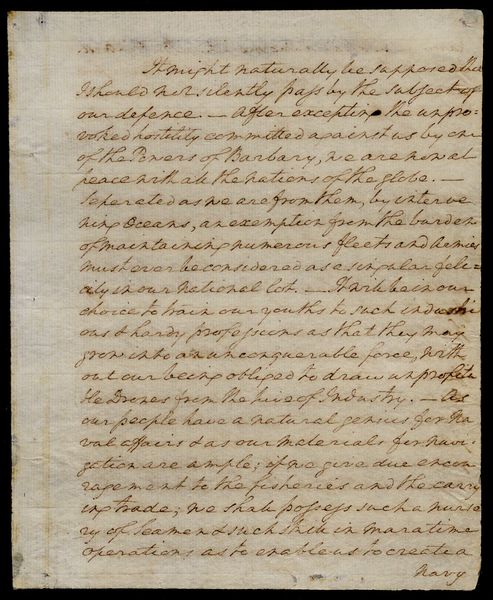 It might naturally be supposed that
I should not silently pass by the subject of
our defence. — After excepting the unpro=
voked hostility committed against us by one
of the Powers of Barbary, we are now at
peace with all the nations of the globe. —
Seperated as we are from them, by interve
ning Oceans, an exemption from the burden
of maintaining numerous fleets and Armies
must ever be considered as a singular feli-
city in our national lot. — It will be in our
choice to train our youths to such industri
ous & hardy professions as that they may
grow into an unconquerable force, with
out our being obliged to draw unprofita
ble Drones from the hive of Industry. — As
our people have a natural genius for Na
val affairs & as our Materials for Navi-
gation are ample; if we give due encou
ragement to the fisheries and the carry
ing trade; we shall possess such a nurse
ry of Seamen & such skill in maratime
operations as to enable us to create a
Navy